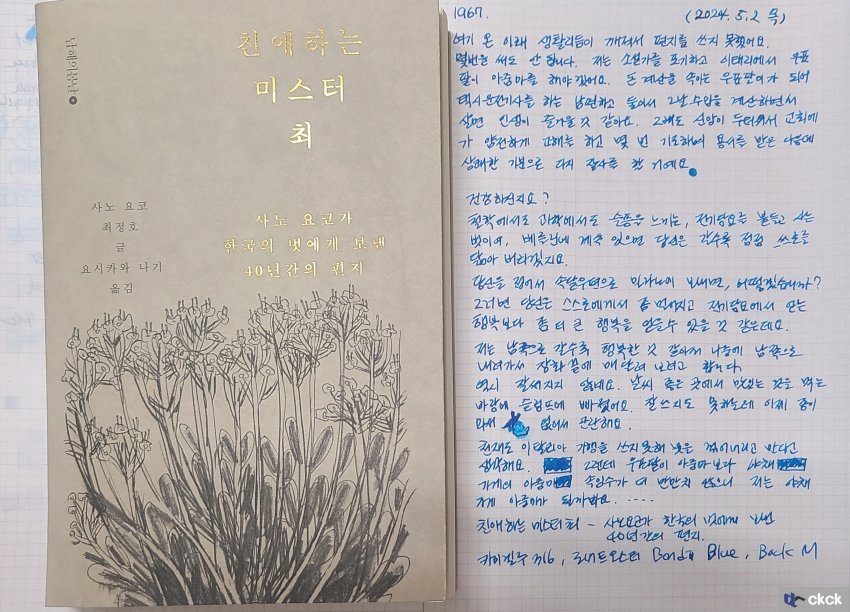 남해의봄날
친애하는
미스터
최
사노 요코
최정호
글
요시카와 나기
옮김
사노 요코가
한국의 벗에게 보낸
40년간의 편지
1967.
(2024. 5. 2 목)
여기 온 이래 생활리듬이 깨져서 편지를 쓰지 못했어요.
몇번을 써도 안 됩니다. 저는 소설가를 포기하고 이태리에서 우표
팔이 아줌마를 해야겠어요. 돈 계산을 속이는 우표팔이가 되어
택시운전기사를 하는 남편하고 둘이서 그날 수입을 계산하면서
살면 인생이 즐거울 것 같아요. 그래도 신앙이 두터워서 교회에
가 얌전하게 고해를 하고 몇 번 기도하여 용서를 받은 다음에
상쾌한 기분으로 다시 장사를 할 거예요.
건강하신지요?
철학에서도 과학에서도 슬픔을 느끼는, 전기담요를 붙들고 사는
벗이여, 베를린에 계속 있으면 당신은 갈수록 점점
닮아 버리겠지요.
당신을 접어서 속달우편으로 밀라노에 보내면, 어떻겠습니까?
그러면 당신은 스스로에게서 좀 멀어지고 전기담요에서 얻는
행복보다 좀 더 큰 행복을 얻을 수 있을 것 같은데요.
저는 남쪽으로 갈수록 행복한 것 같아서 나중에 남쪽으로
내려가서 장화 끝에 매달려 보려고 합니다.
역시 잘써지지 않네요. 날씨 좋은 곳에서 맛있는 것을 먹는
바람에 슬럼프에 빠졌어요. 잘쓰지도 못하는데 이제 종이
마저 없어서 곤란해요.
천재도 이탈리아 기행을 쓰지 못해
생각해요. 그런데 우표팔이 아줌마보다 야채
가게의 아줌마 속임수가 더 만만치 않으니 저는 야채
가게 아줌마가 될까봐요. ....
친애하는 미스터 최 - 사노요코가 한국의 벗에게 보낸
40년간의 편지.
카키모리 716, 로버트오스터 Bondi Blue, Bock M
ckck